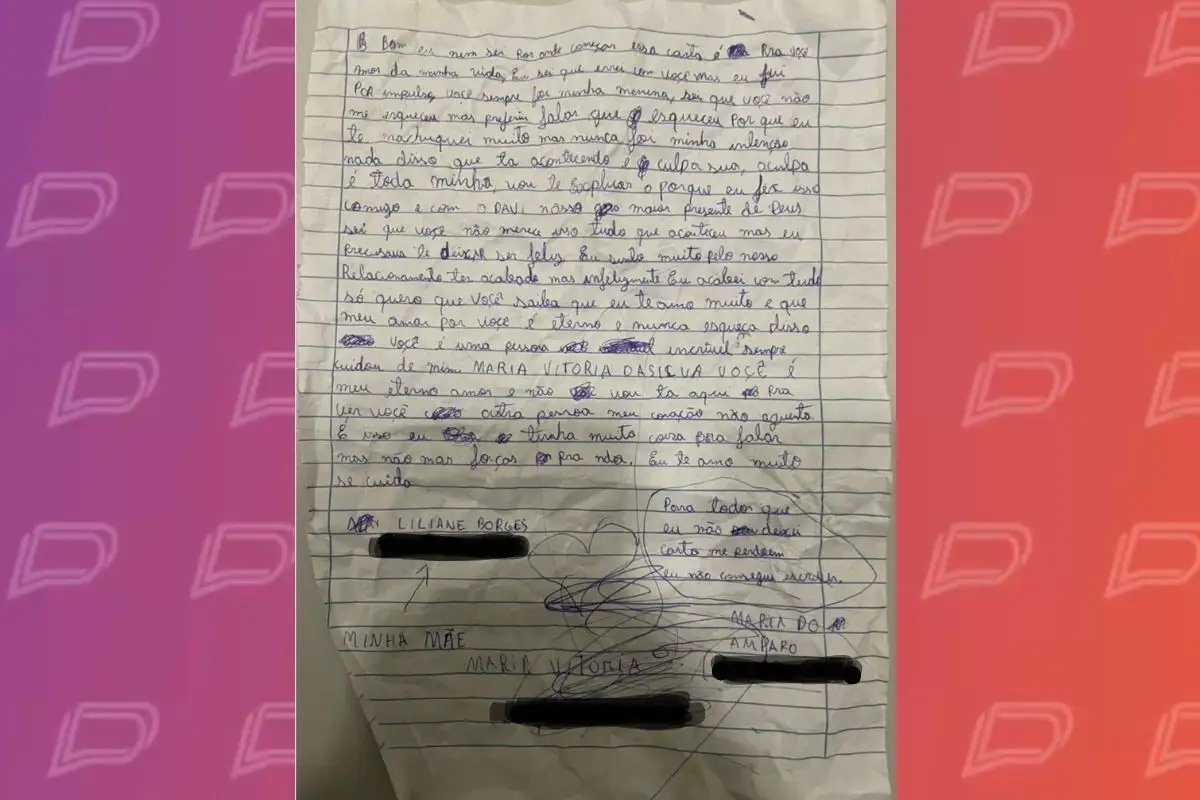 Bom eu nem sei por onde começar essa carta é Pra você
Amor da minha vida, Eu sei que errei com você mas eu fui
Por impulso, você sempre foi minha menina, sei que você não
me esqueceu mas preferiu falar que esqueceu Por que eu
te machuquei muito mas nunca foi minha intenção
nada disso que ta acontecendo é culpa sua, a culpa
é toda minha, vou te explicar o porque eu fex isso
comigo e com o DAVI nosso maior presente de Deus
sei que você não merece isso tudo que aconticeu mas eu
Precisava te deixar ser feliz Eu sinto muito pelo nosso
Relacionamento ter acabado mas infelizmente Eu acabei com tudo
só quero que você saiba que eu te amo muito e que
meu amor por você é eterno e nunca esqueça disso
você é uma pessoa incrível sempre
cuidou de mim MARIA VITORIA DASILVA VOCÊ é
meu eterno amor e não vou ta aqui Pra
ver você outra pessoa meu coração não aguenta.
É isso eu tinha muito coisa pra falar
mas não mas forças pra nda. Eu te amo muito
se cuida
Para todos que
eu não deixei
carta me perdoem
eu não consegui escrever.
LILIANE BORGES
MINHA MÃE
MARIA VITORIA
MARIA DO
AMPARO